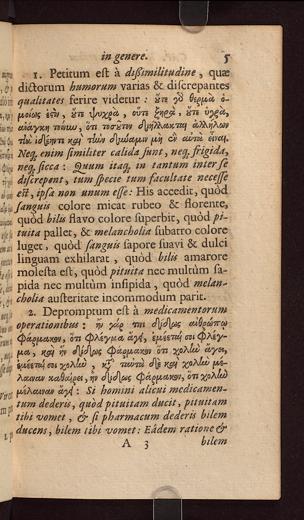 in genere. 5
1. Petitum est à dißimilitudine, quæ
dictorum humorum varias & discrepantes
qualitates ferire videtur: ὔτε γὸ θερμὰ ὁ-
μοίως ἐςὶν, ὔτε ψυχρὰ, ὔτε ξηρὰ, ὔτε ὑγρὰ,
ἀνάγκη
Neq, enim similiter calida sunt, neq, frigida,
neq, sicca: Quum itaq, in tantum inter se
discrepent, tum specie tum facultate necesse
est, ipsa non unum esse: His accedit, quòd
sanguis colore micat rubeo & florente,
quòd bilis flavo colore superbit, quòd pi-
tuita pallet, & melancholia subatro colore
luget, quòd sanguis sapore suavi & dulci
linguam exhilarat, quòd bilis amarore
molesta est, quòd pituita nec multùm sa-
pida nec multùm insipida, quòd melan-
cholia austeritate incommodum parit.
2. Depromptum est à medicamentorum
operationibus: ἢν γάρ τινι διδῷς ἀνθρώπῳ
φάρμακον, ὅτι φλέγμα ἄγει, ἐμέεταί σοι φλέγ-
μα, καὶ ἢν διδῷς φάρμακον ὅτι χολὴν ἄγει,
ἐμέεταί σοι χολὴν,
μέλαιναν καθαίρει, ἢν διδῷς φάρμακον, ὅτι χολὴν
μέλαιναν ἄγει: Si homini alicui medicamen-
tum dederis, quòd pituitam ducit, pituitam
tibi vomet, & si pharmacum dederis bilem
ducens, bilem tibi vomet: Eâdem ratione &
A 3 bilem